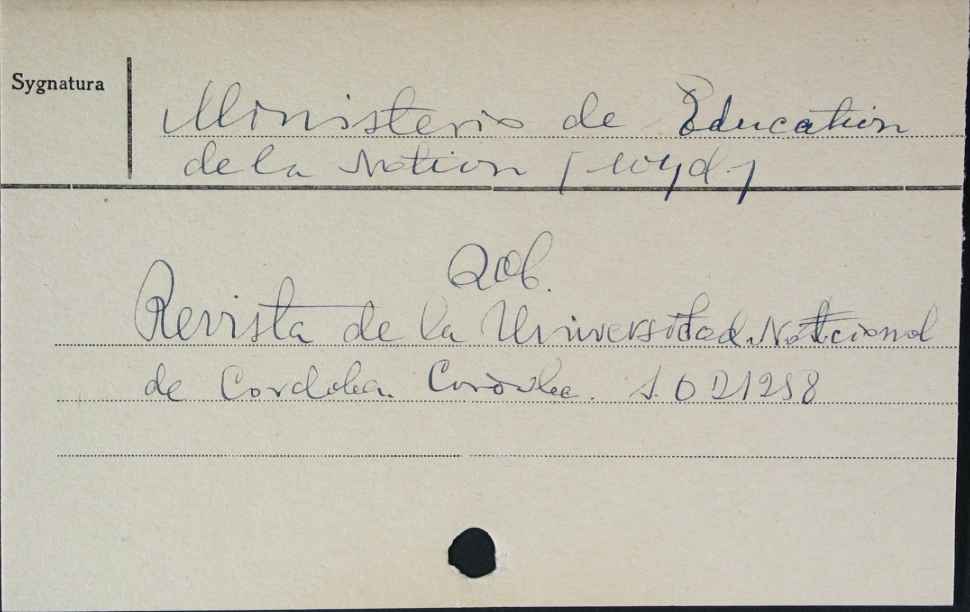 Sygnatura
Ministerio de Education
de la Nation [wyd.]
Zob.
Revista de la Universidad Nacional
de Cordoba. Cordoba. s. 0 D1258